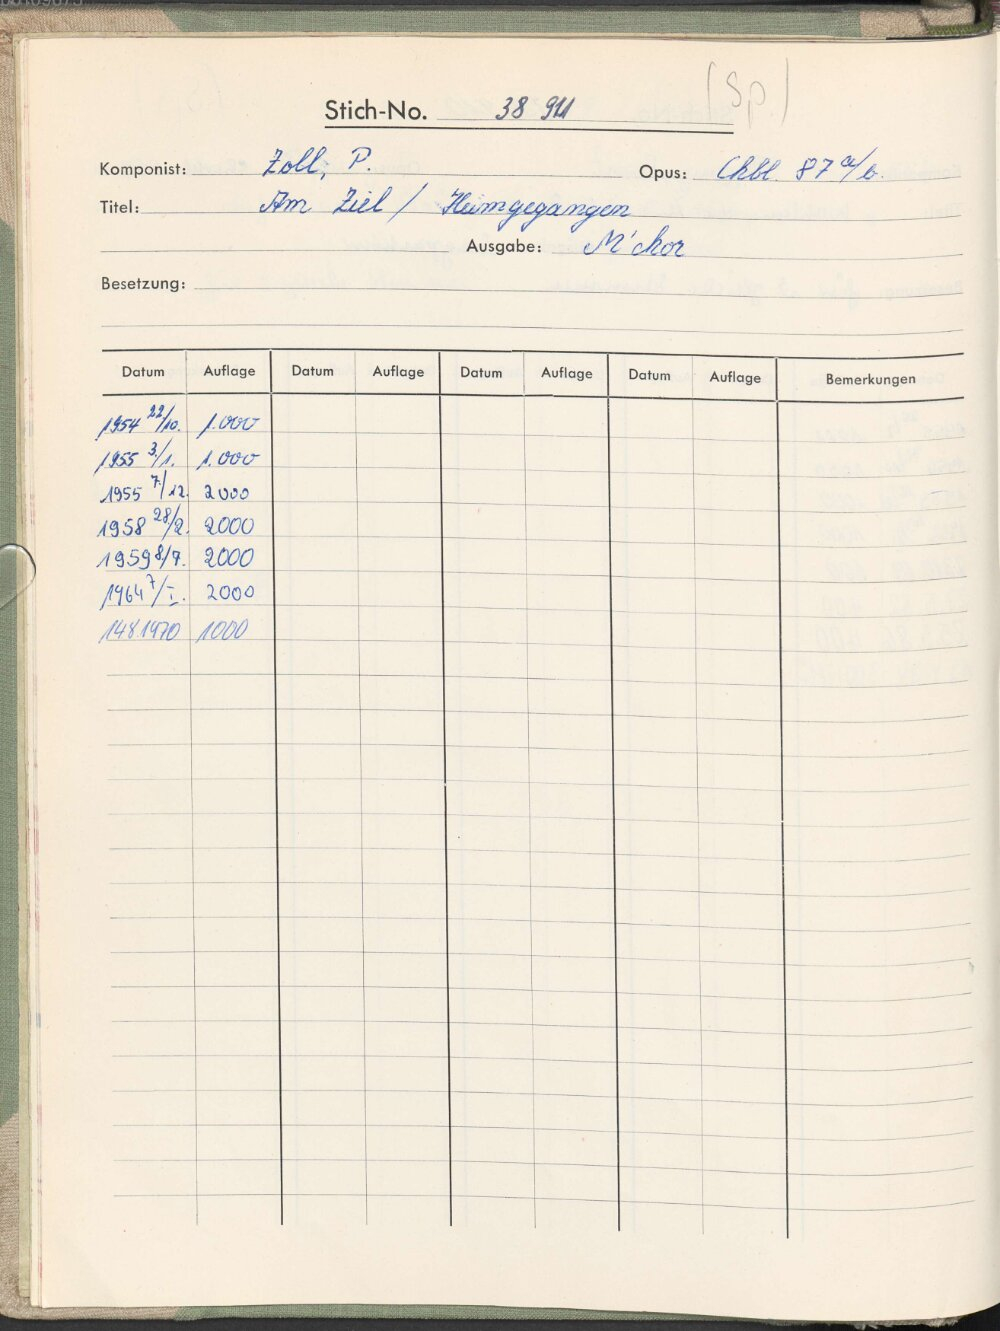 (Sp.)
Stich-No. 38 911
Komponist: Zoll, P. Opus: Chbl. 87 a/b.
Titel: Am Ziel / Heimgegangen
Ausgabe: M'chor
Besetzung:
Datum Auflage Datum Auflage Datum Auflage Datum Auflage Bemerkungen
1954 22/10. 1.000
1955 3/1. 1.000
1955 7/12. 2000
1958 28/2. 2000
1959 8/7. 2000
1964 7/I. 2000
14.8.1970 1000